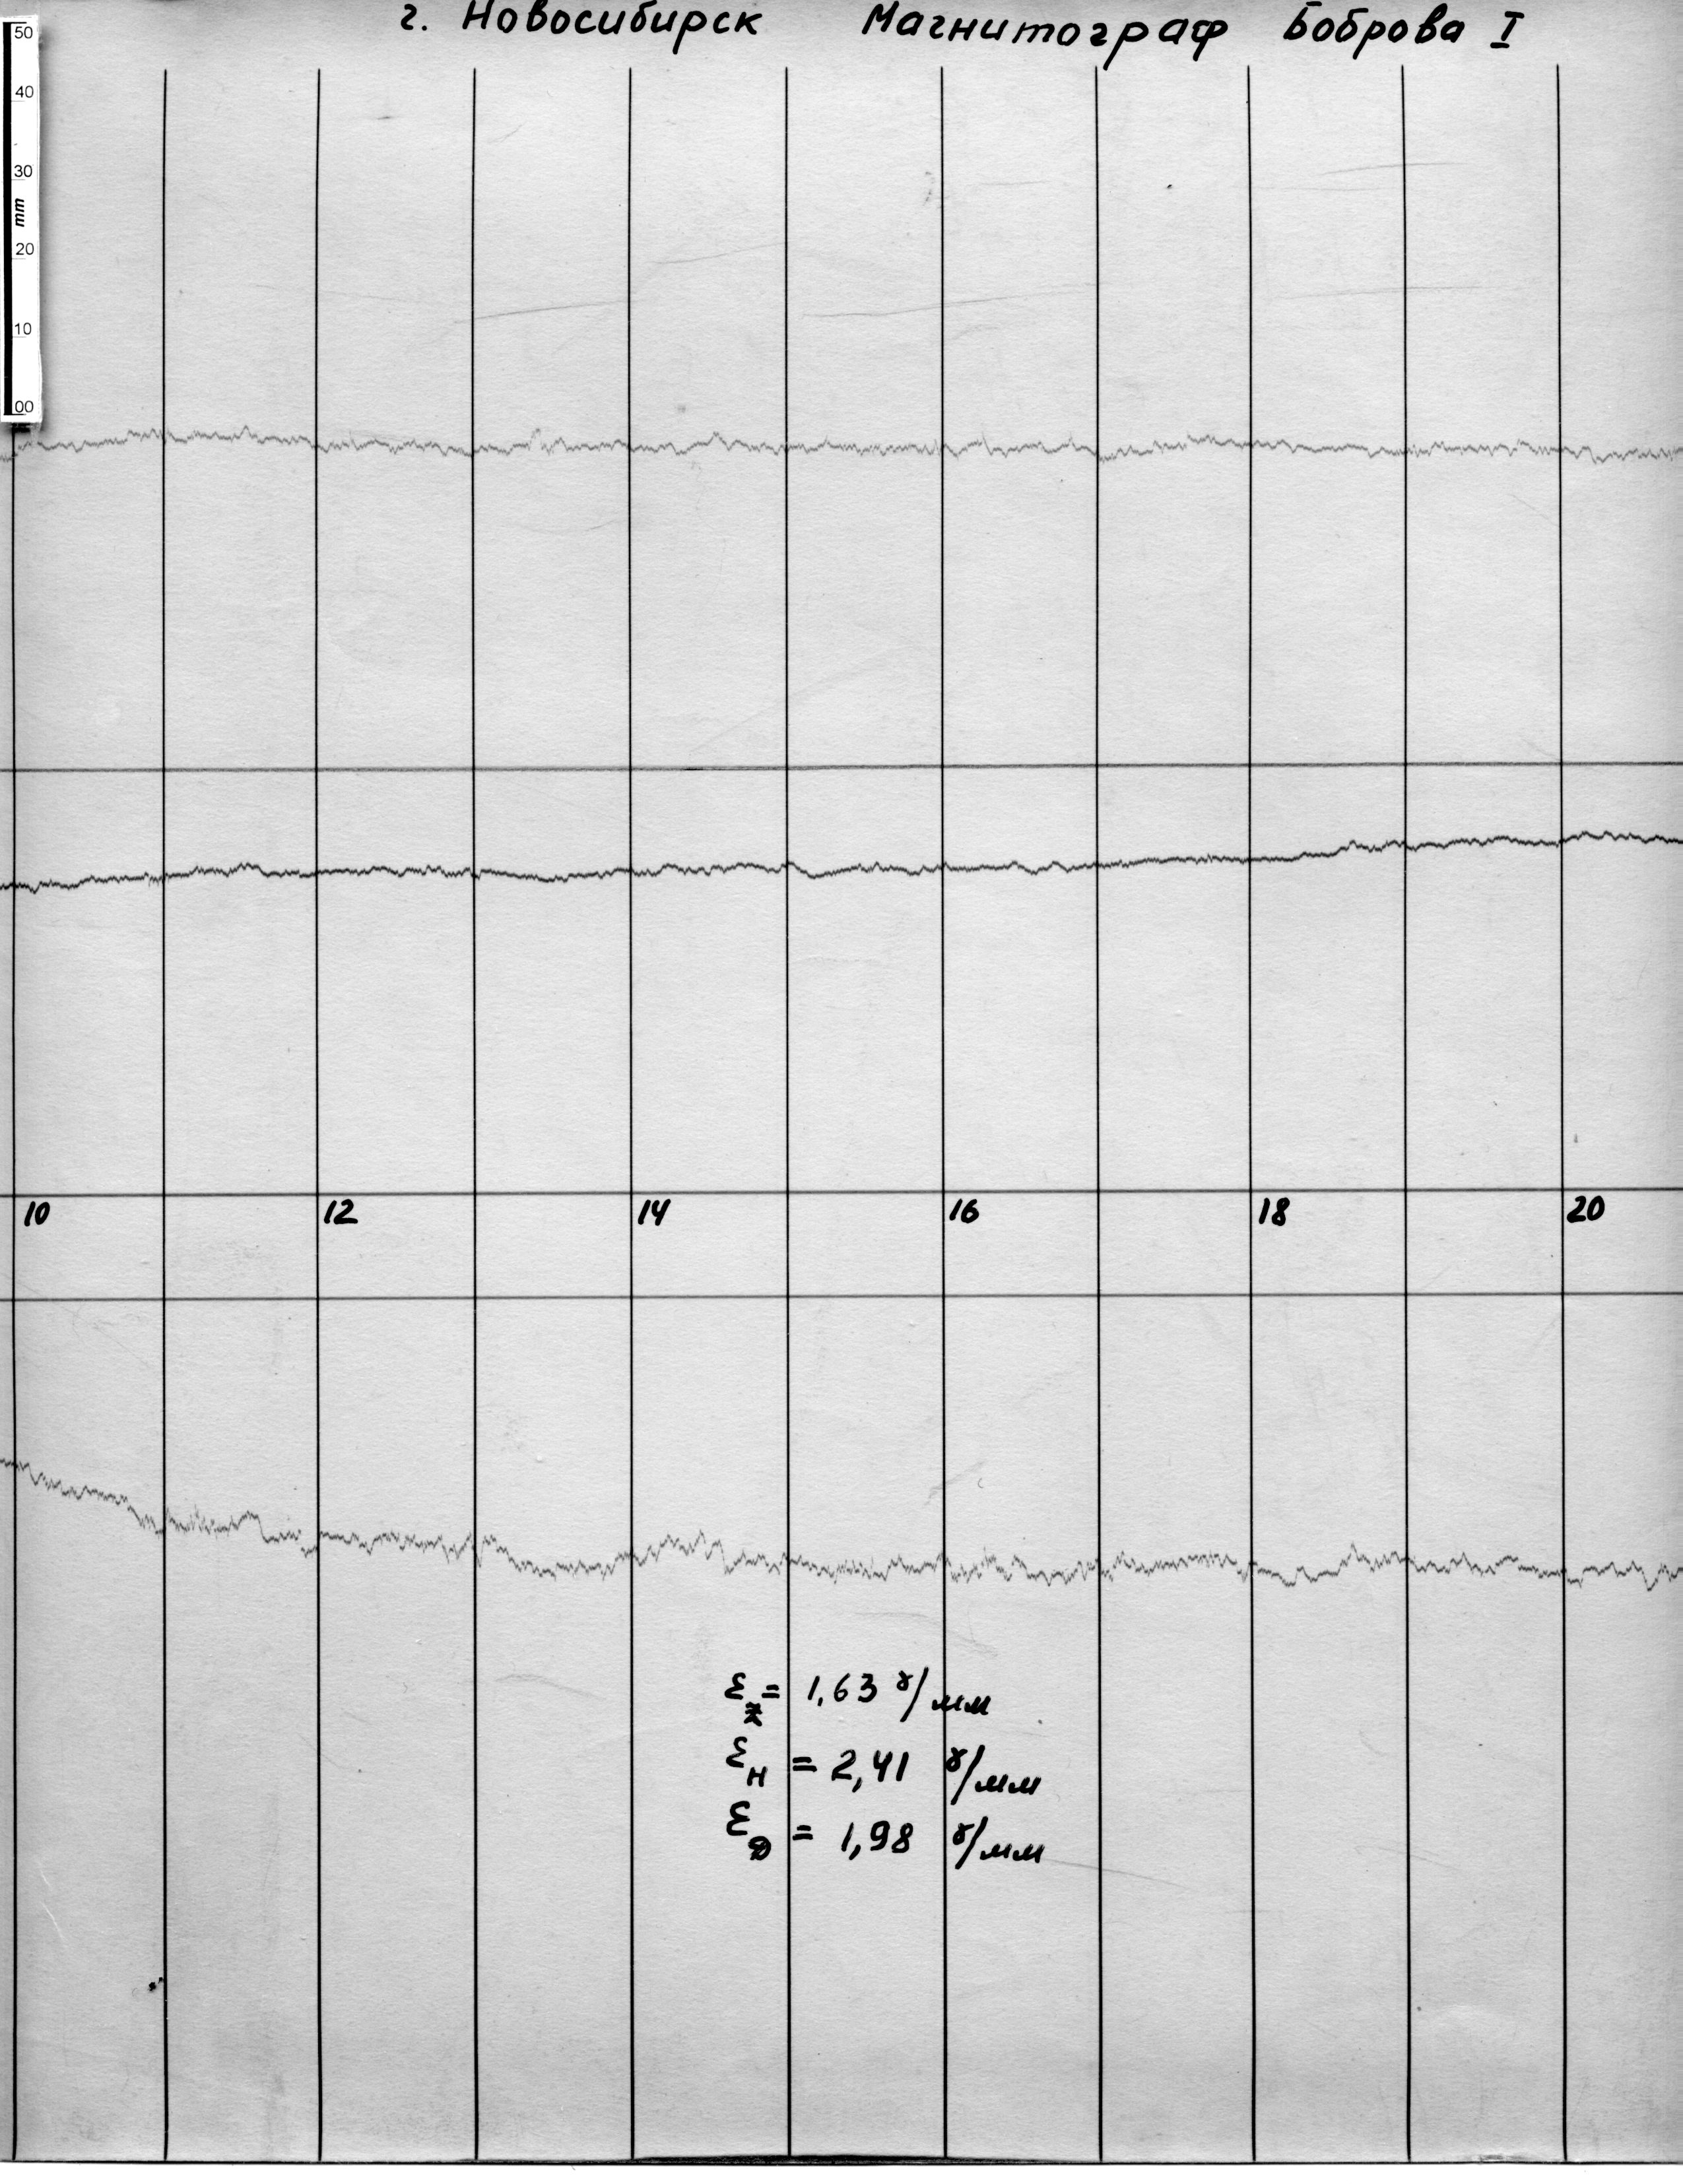 г. Новосибирск Магнитограф Боброва I
50
40
30
mm
20
10
00
10 12 14 16 18 20
ε_z = 1,63 γ/мм
ε_H = 2,41 γ/мм
ε_D = 1,98 γ/мм